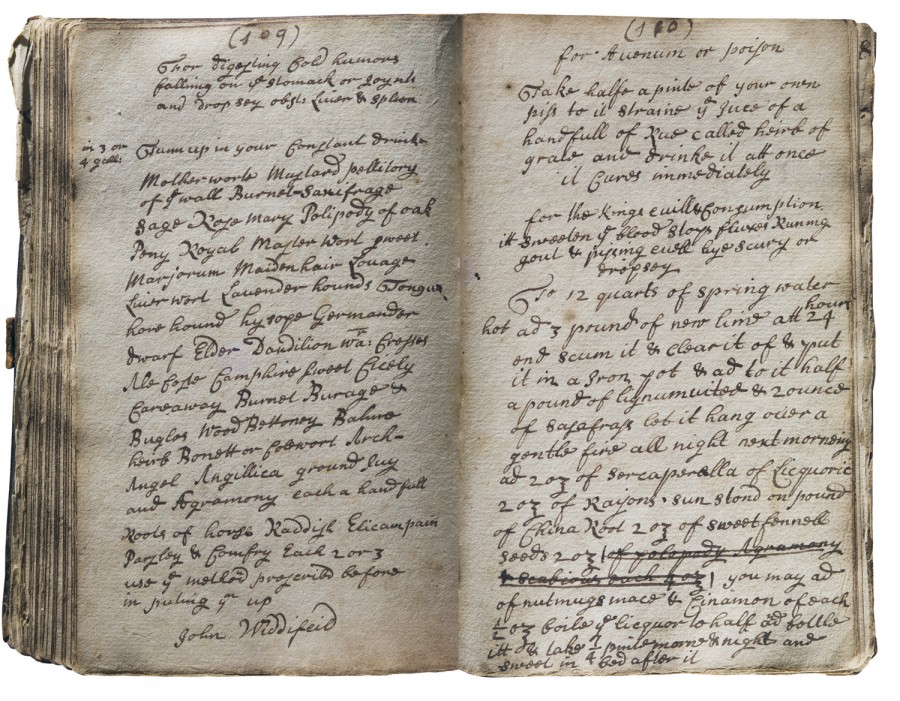 (109)
For digesting Cold humors
falling on yᵉ stomack or Joynts
and dropsey obst: Liuer & spleen
in 3 or
4 gall:
Tunn up in your Constant drinke
Motherworte Mustard pellitory
of yᵉ wall Burnet-Saxifrage
sage Rosemary Polipody of oak
Peny Royal Master wort sweet
Marjorum Maidenhair Lovage
Liuer wort Lauender hounds Tongue
hore hound hysope Germander
dwarf Elder Dandilion wa: Cresses
Ale Cose Camphire sweet Cicely
Careaway Burnet Burage &
Buglos Wood Bettoney Balme
heirb Bonett or Colswort Arch-
Angel Angillica ground Iuy
and Agramony each a handfull
Roots of horse Raddish Elicampain
Parsley & Comfry Each 2 or 3
use yᵉ method prescribd before
in puting yᵐ up
John Widdifeild
(110)
for Auenum or poison
Take halfe a pinte of your own
piss to it straine yᵉ Juce of a
handfull of Rue called heirb of
grace and drinke it att once
it Cures immediately
for the Kings euill & Consumption
it sweeten yᵉ blood stops fluxes Runing
gout & pissing euell bye scury or
dropsey
To 12 quarts of spring water
hot ad 3 pound of new lime att 24 hours
end scum it & clear it of & put
it in a Iron pot & ad to it half
a pound of lignumvited & 2 ounce
of Sasafrass let it hang over a
gentle fire all night next morneing
ad 2 oz of sercaperella of Licquoric
2 oz of Raisons sun stond on pound
of China Root 2 oz of sweet fennell
seeds 2 oz of polopody Agramony
& scabious each 4 oz you may ad
of nutmugs mace & Cinamon of each
½ oz boile yᵉ licquor to half ad bottle
itt & take ½ pinte morne & night and
sweet in bed after it